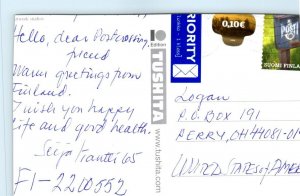 Hello, dear Postcrossing
friend
Warm greetings from
Finland.
I wish you happy
life and good health.
Seija
FI-2200552
Edition
TUSHITA
www.tushita.com
PRIORITY
0,10€
POSTI
SUOMI FINLAND
Logan
P.O BOX 191
PERRY, OH 44081-01
UNITED STATES of AMER